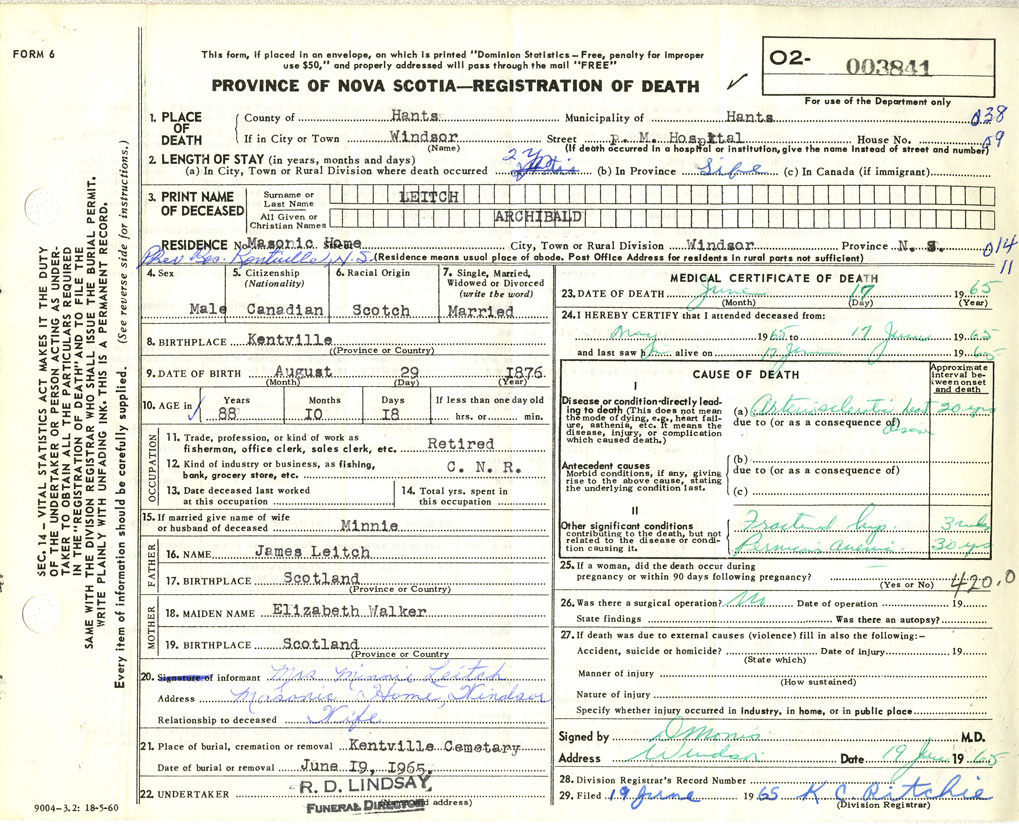 FORM 6
This form, if placed in an envelope, on which is printed "Dominion Statistics – Free, penalty for improper
use $50," and properly addressed will pass through the mail "FREE"
PROVINCE OF NOVA SCOTIA—REGISTRATION OF DEATH
O2- 003841
For use of the Department only
1. PLACE OF DEATH
County of Hants Municipality of Hants 038
If in City or Town Windsor Street P. M. Hospital House No. 09
(Name) (If death occurred in a hospital or institution, give the name instead of street and number)
2. LENGTH OF STAY (in years, months and days)
(a) In City, Town or Rural Division where death occurred 2 y (b) In Province Life (c) In Canada (if immigrant)
3. PRINT NAME OF DECEASED
Surname or Last Name LEITCH
All Given or Christian Names ARCHIBALD
RESIDENCE No. Masonic Home City, Town or Rural Division Windsor Province N. S. 014
Prev Res. Kentville, N.S. (Residence means usual place of abode. Post Office Address for residents in rural parts not sufficient) 11
4. Sex Male
5. Citizenship (Nationality) Canadian
6. Racial Origin Scotch
7. Single, Married, Widowed or Divorced (write the word) Married
8. BIRTHPLACE Kentville
((Province or Country)
9. DATE OF BIRTH August 29 1876
(Month) (Day) (Year)
10. AGE in Years 88 Months 10 Days 18 If less than one day old hrs. or min.
OCCUPATION
11. Trade, profession, or kind of work as
fisherman, office clerk, sales clerk, etc. Retired
12. Kind of industry or business, as fishing,
bank, grocery store, etc. C. N. R.
13. Date deceased last worked at this occupation
14. Total yrs. spent in this occupation
15. If married give name of wife
or husband of deceased Minnie
FATHER
16. NAME James Leitch
17. BIRTHPLACE Scotland
(Province or Country)
MOTHER
18. MAIDEN NAME Elizabeth Walker
19. BIRTHPLACE Scotland
(Province or Country
20. Signature of informant Mrs Minnie Leitch
Address Masonic Home, Windsor
Relationship to deceased Wife
21. Place of burial, cremation or removal Kentville Cemetary
Date of burial or removal June 19, 1965.
22. UNDERTAKER R. D. LINDSAY
FUNERAL DIRECTOR
address)
MEDICAL CERTIFICATE OF DEATH
23. DATE OF DEATH June 17 1965
(Month) (Day) (Year)
24. I HEREBY CERTIFY that I attended deceased from:
May 1965 to 17 June 1965
and last saw him alive on 17 June 1965
CAUSE OF DEATH
Approximate interval between onset and death
I
Disease or condition directly leading to death (This does not mean the mode of dying, e.g., heart failure, asthenia, etc. It means the disease, injury, or complication which caused death.)
(a) Arteriosclerotic heart disease 20 yrs
due to (or as a consequence of)
Antecedent causes
Morbid conditions, if any, giving rise to the above cause, stating the underlying condition last.
(b)
due to (or as a consequence of)
(c)
II
Other significant conditions contributing to the death, but not related to the disease or condition causing it.
Fractured hip 3 wks
Pernicious anemia 30 yrs
25. If a woman, did the death occur during
pregnancy or within 90 days following pregnancy?
(Yes or No) 420.0
26. Was there a surgical operation? No Date of operation 19
State findings Was there an autopsy?
27. If death was due to external causes (violence) fill in also the following:–
Accident, suicide or homicide? Date of injury 19
(State which)
Manner of injury
(How sustained)
Nature of injury
Specify whether injury occurred in industry, in home, or in public place
Signed by M.D.
Address Windsor Date 19 June 1965
28. Division Registrar's Record Number
29. Filed 19 June 1965 K C Ritchie
(Division Registrar)
SEC. 14 – VITAL STATISTICS ACT MAKES IT THE DUTY
OF THE UNDERTAKER OR PERSON ACTING AS UNDER-
TAKER TO OBTAIN ALL THE PARTICULARS REQUIRED
IN THE "REGISTRATION OF DEATH" AND TO FILE THE
SAME WITH THE DIVISION REGISTRAR WHO SHALL ISSUE THE BURIAL PERMIT.
WRITE PLAINLY WITH UNFADING INK. THIS IS A PERMANENT RECORD.
Every item of information should be carefully supplied. (See reverse side for instructions.)
9004–3.2: 18-5-60